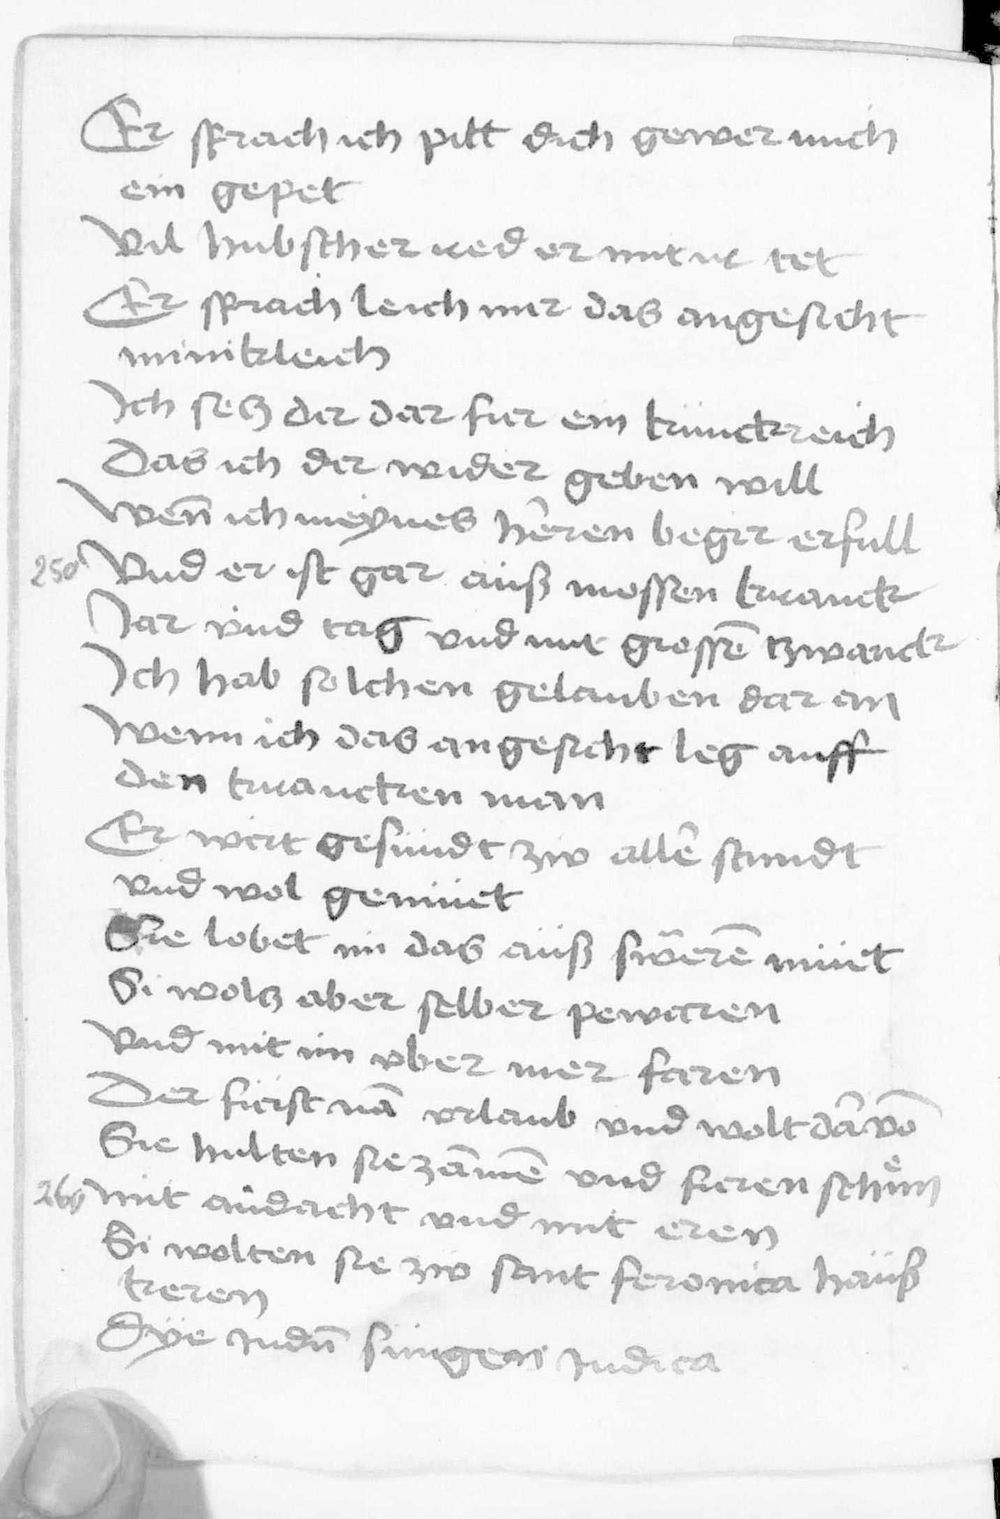 Er sprach ich pitt dich gewer mich
ein gepet
Vil hubscher red er mit ir tet
Er sprach leich mir das angesicht
minikleich
Ich secz dir dar fier ein künckreich
Das ich dir wider geben will
Wen̄ ich meynes hẽren begir erfull
250 Vnd er ist gar auß mossen kranck
Jar vnd tag vnd mit grossē zwanck
Ich hab solchen gelauben dar an
Wenn ich das angesicht leg auff
den krancken man
Er wirt gesundt zw allē stundt
vnd wol gemuet
Sie lobet im das auß swerē muet
Si wolcz aber selber pewaren
Vnd mit im vber mer faren
Der fuist nā vrlaub vnd wolt dā vō
Sie hulten sie zāmē vnd fieren schon
260 Mit andacht vnd mit eren
Si wolten sie zw sant feronica hauß
keren
Dye Judn̄ sungen Judica